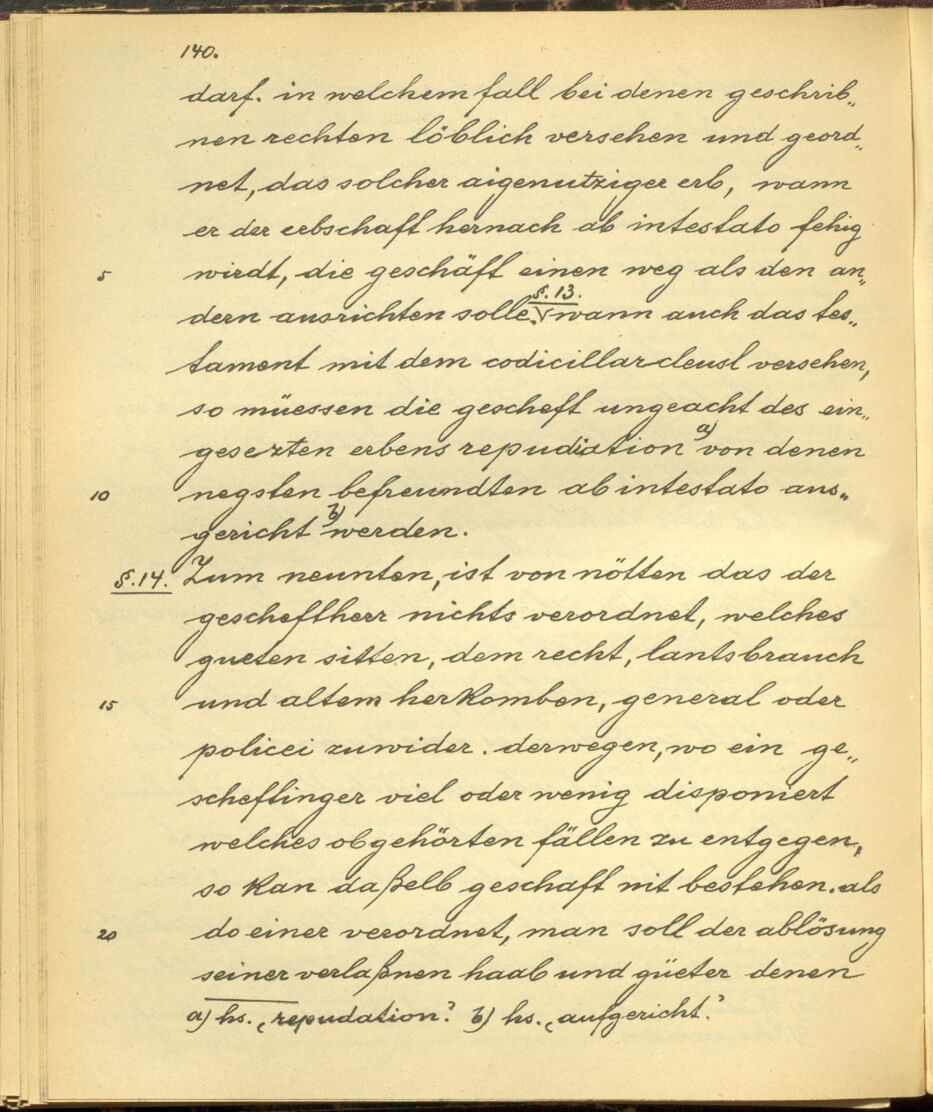 140.
darf. in welchem fall bei denen geschrib„
nen rechten löblich versehen und geord„
net, das solcher aigenutziger erb, wann
er der erbschaft hernach ab intestato fehig
5 wirdt, die geschäft einen weg als den an„
dern ausrichten solle. §. 13. wann auch das tes„
tament mit dem codicillarcleusl versehen,
so müessen die gescheft ungeacht des ein„
gesezten erbens repudiation a) von denen
10 negsten befreundten ab intestato aus„
gericht b) werden.
§. 14. Zum neunten, ist von nötten das der
gescheftherr nichts verordnet, welches
gueten sitten, dem recht, lantsbrauch
15 und altem herkomben, general oder
policei zuwider. derwegen, wo ein ge„
scheftinger viel oder wenig disponiert
welches obgehörten fällen zu entgegen,
so kan daßelb geschaft nit bestehen. als
20 do einer verordnet, man soll der ablösung
seiner verlaßnen haab und güeter denen
a) hs. „repudation“. b) hs. „aufgericht“.